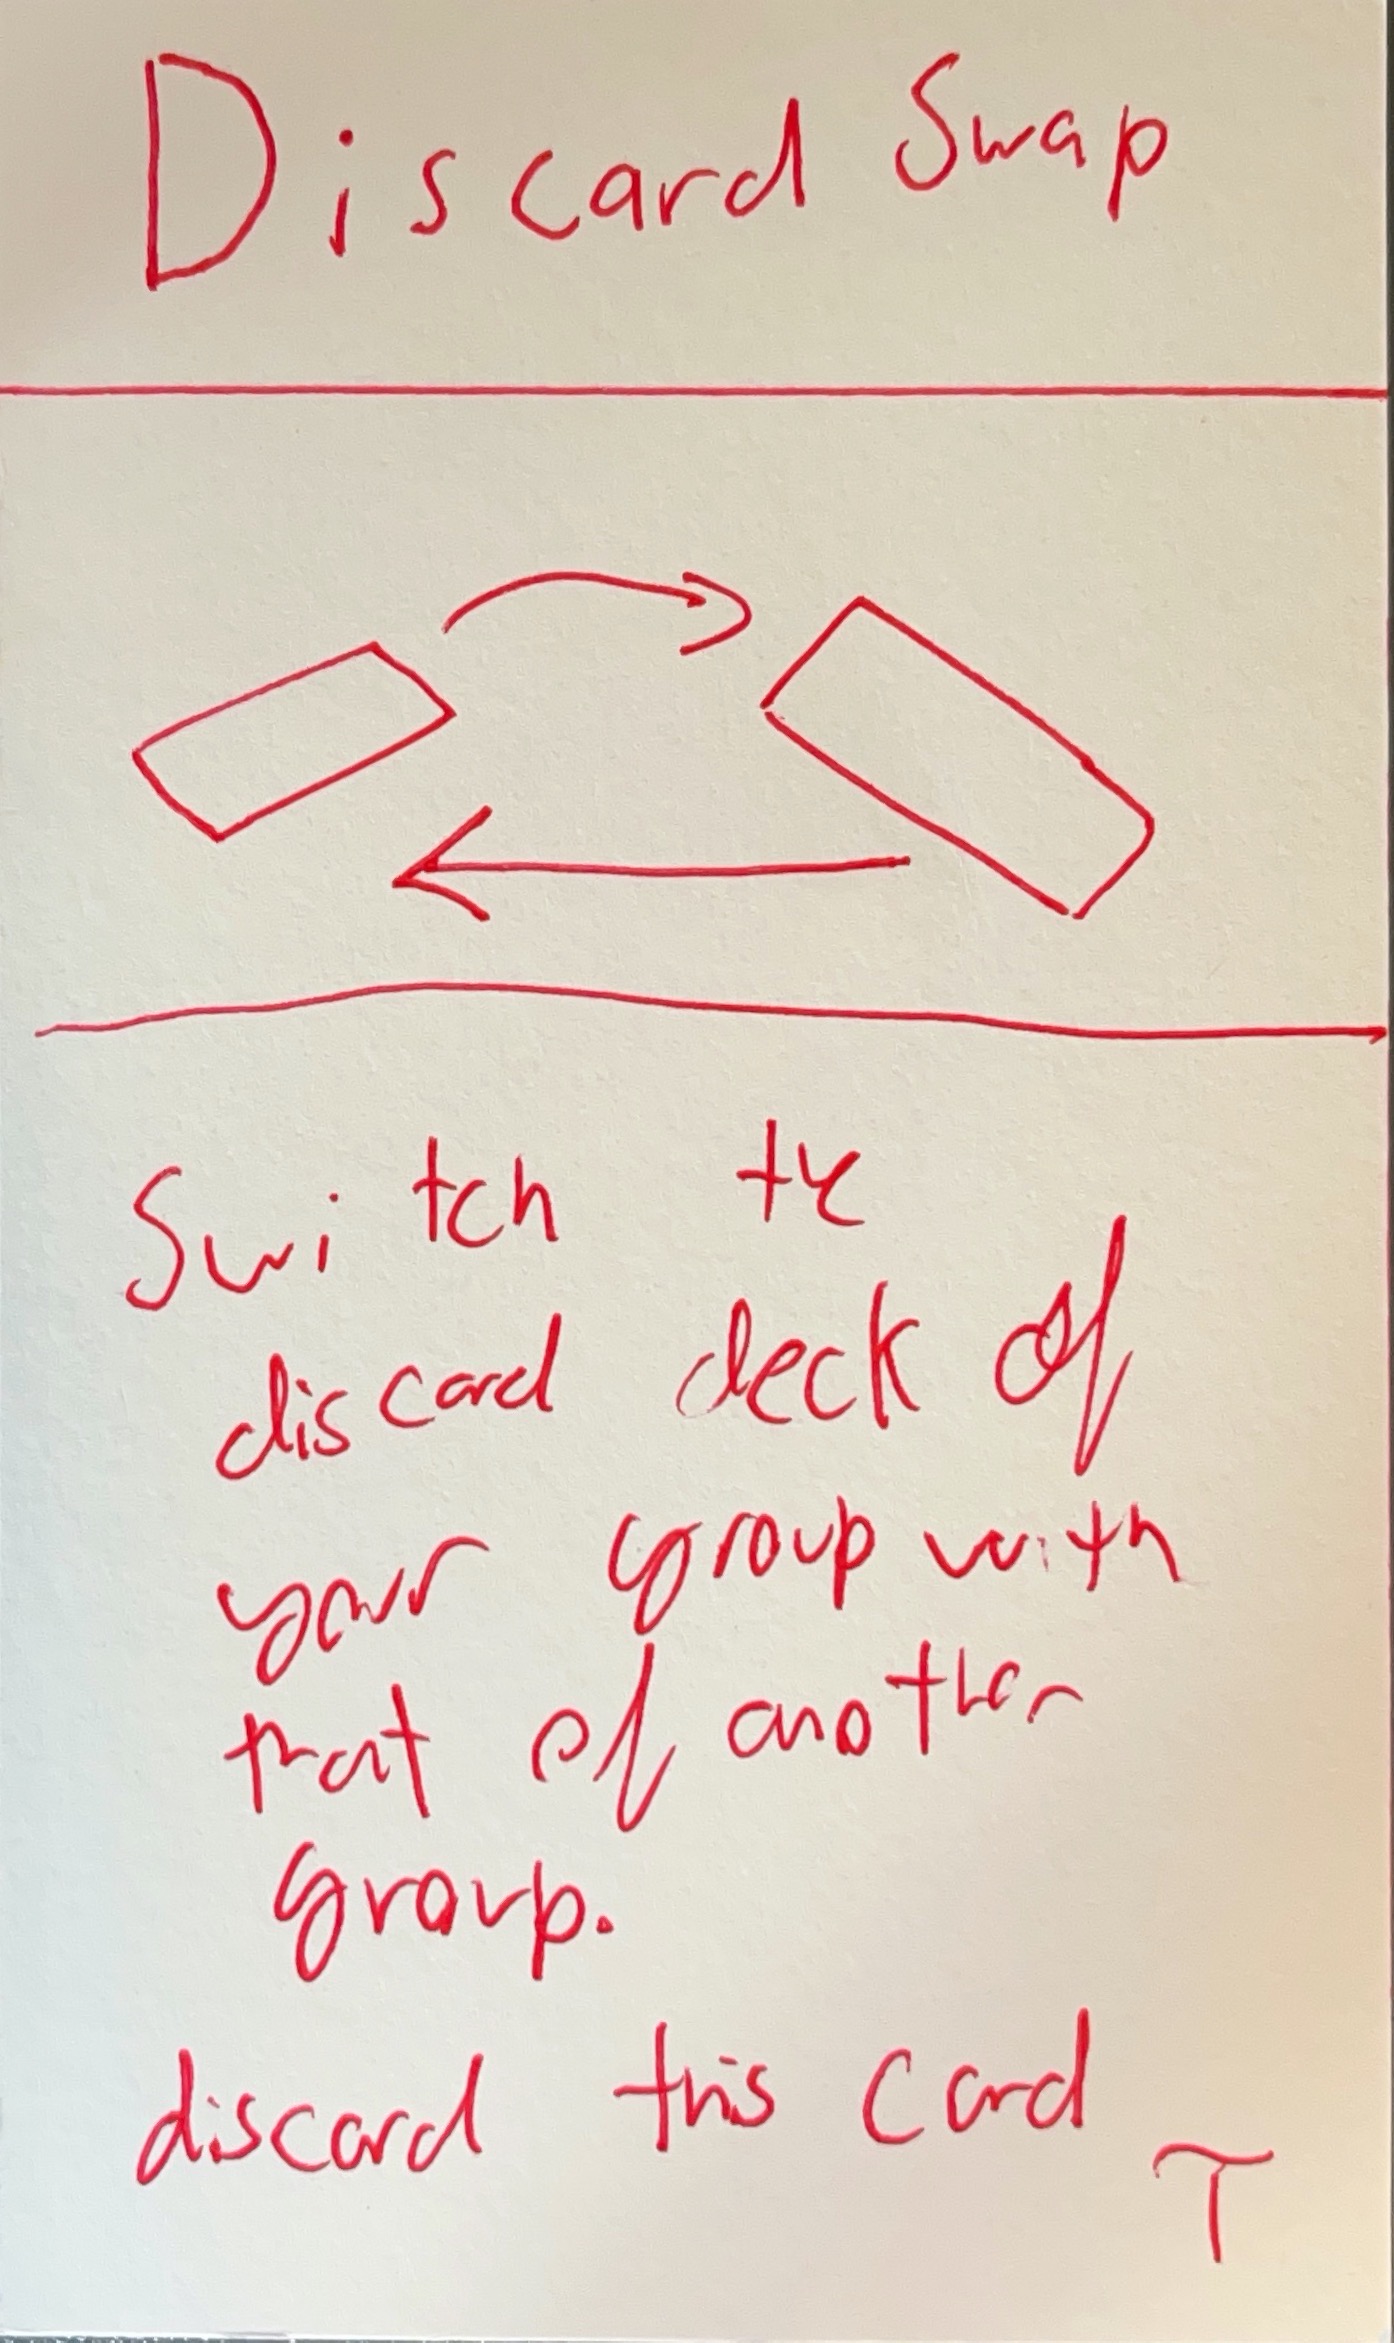 Discard Swap
Switch the
discard deck of
your group with
that of another
group.
discard this card
T